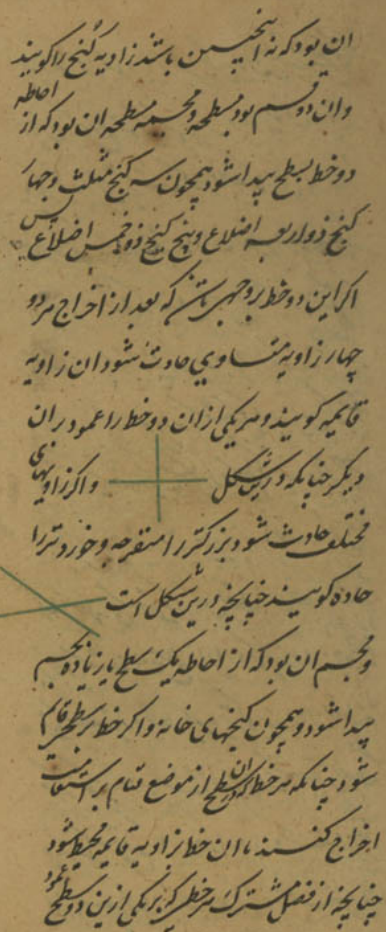 ان بود که نه اینچنین باشد زاویه کنج را کویند
وان دو قسم بود مسطحه و مجسمه مسطحه ان بود که از احاطه
دو خط بسطح پیدا شود همچون سه کنج مثلث و چهار
کنج ذو اربعه اضلاع و پنج کنج ذو خمس اضلاع پس
اکر این دو خط بر وجهی باشند که بعد از اخراج هر دو
چهار زاویه متساوی حادث شود ان زاویه
قایمه کویند و هر یکی از ان دو خط را عمود بر ان
دیکر چنانکه درین شکل و اکر زاویهای
مختلف حادث شود بزرکتر را منفرجه و خوردتر را
حاده کویند چنانچه درین شکل است
و مجسم ان بود که از احاطه یک سطح یا زیاده بجسم
پیدا شود و همچون کنجهای خانه و اکر خط بر سطح قایم
شود چنانکه هر خط که در ان سطح از موضع قیام بر استقامت
اخراج کنند با ان خط زاویه قایمه محیط شود
چنانچه از فصل مشترک هر خطی که بر یکی ازین دو سطح عمود